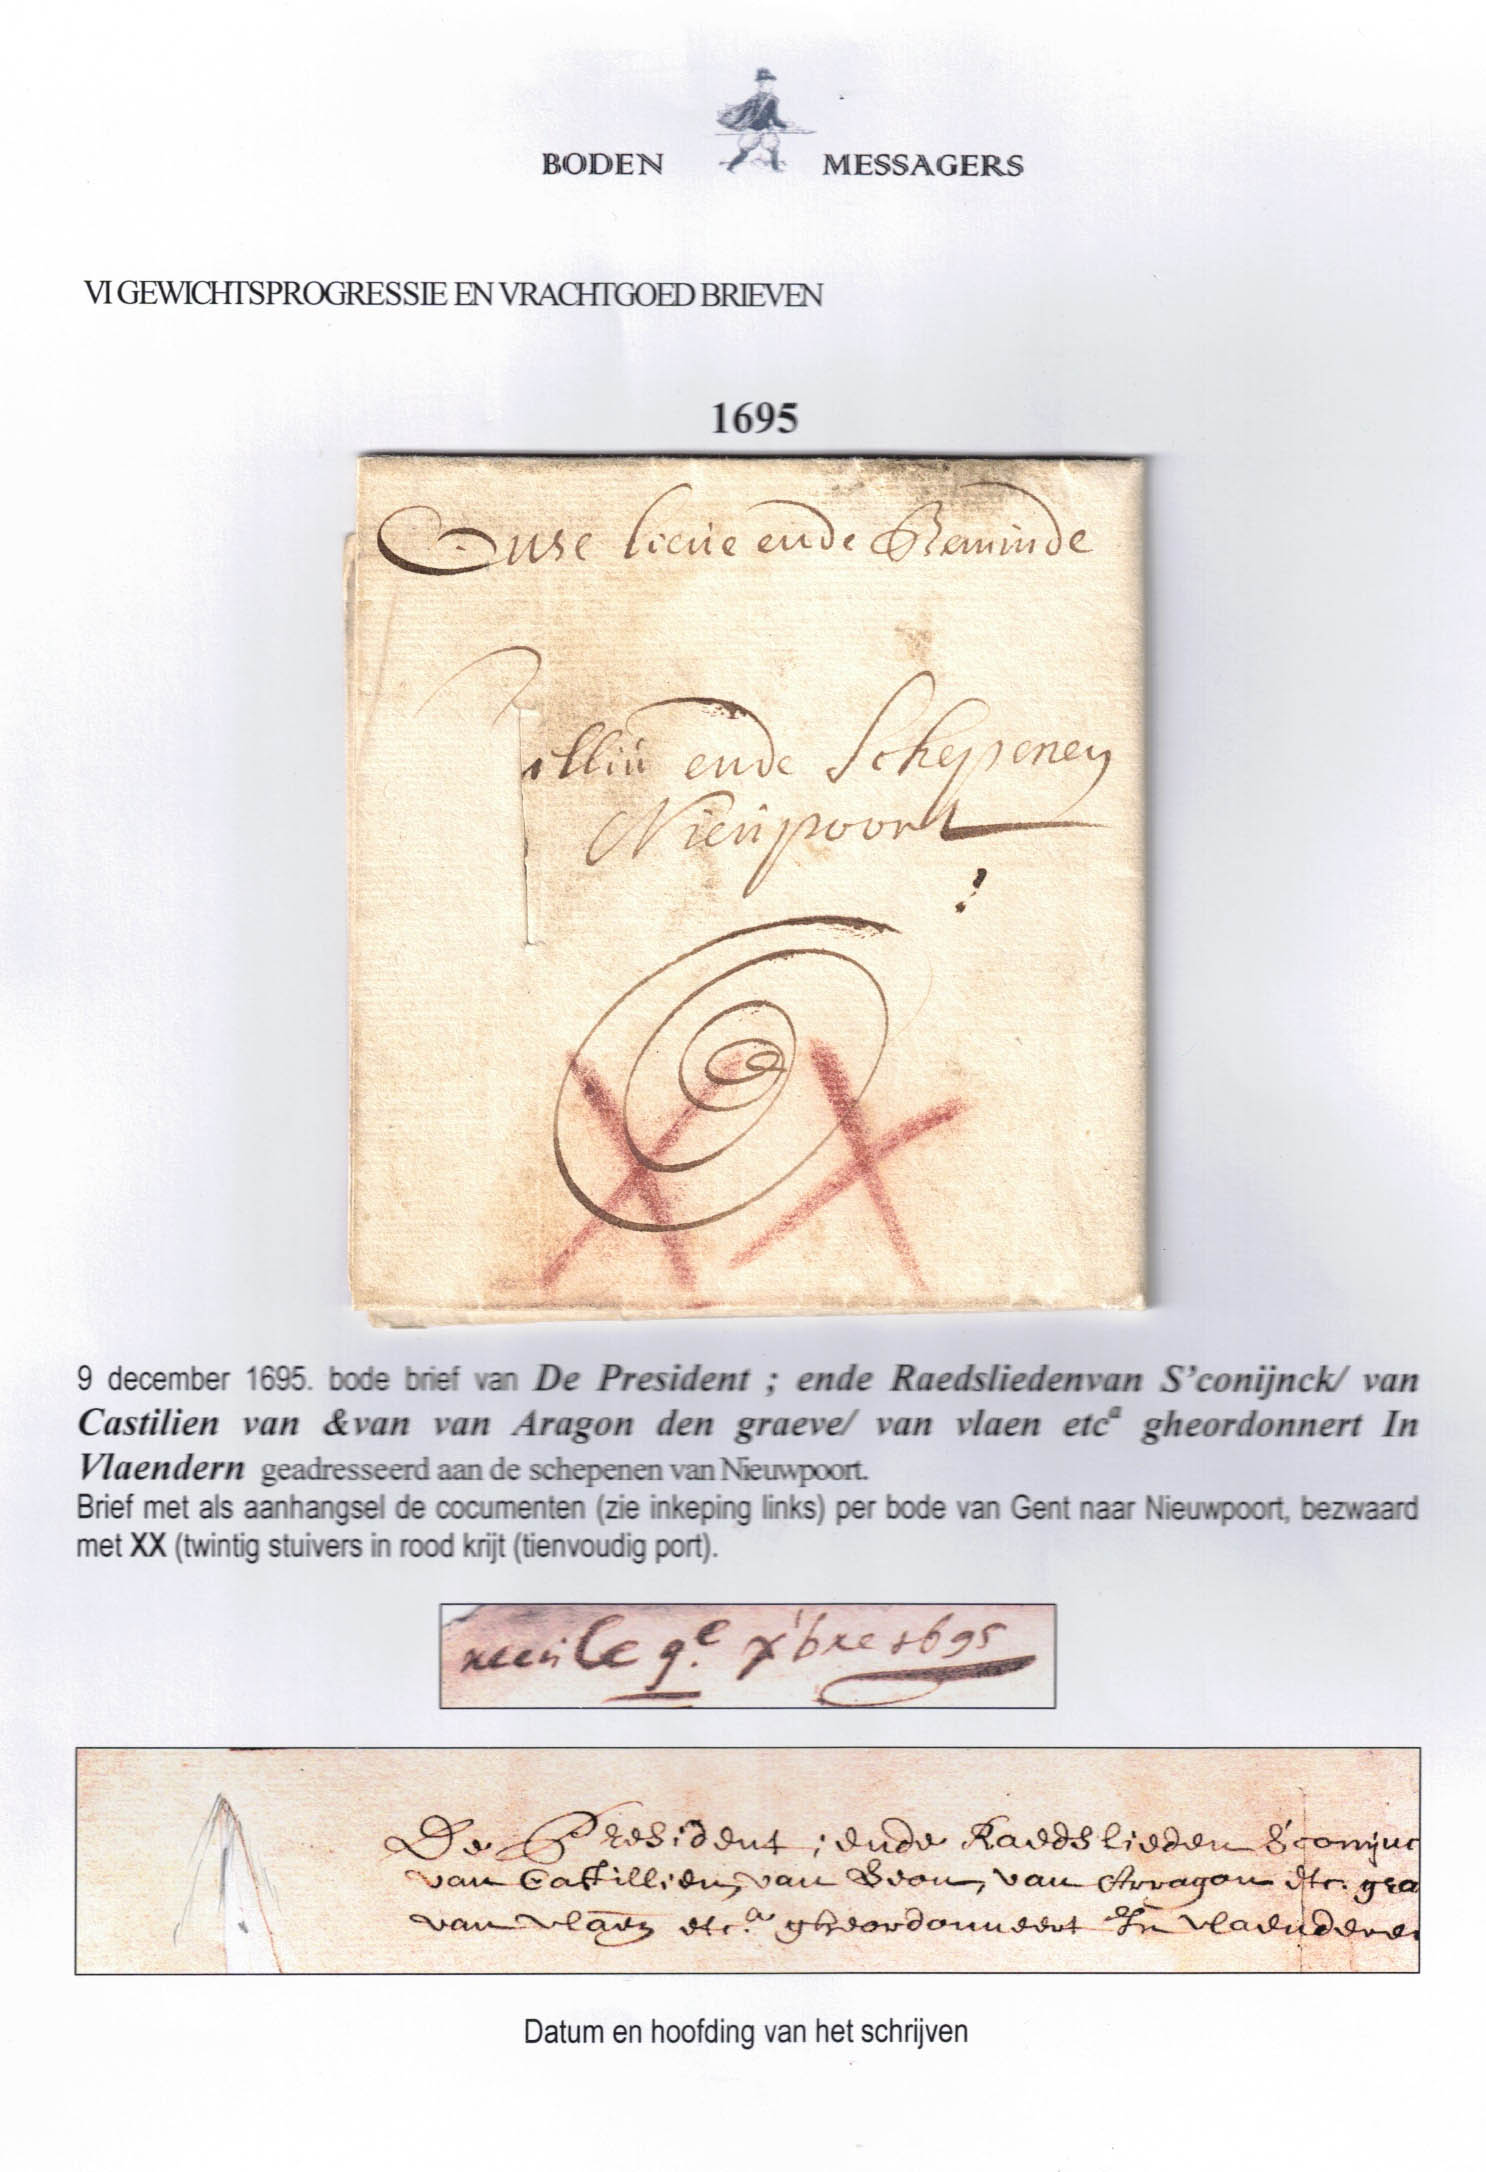 BODEN MESSAGERS
VI GEWICHTSPROGRESSIE EN VRACHTGOED BRIEVEN
1695
Onse lieue ende Beminde
ende Schepenen
Nieupoort
9 december 1695. bode brief van De President ; ende Raedsliedenvan S’conijnck/ van
Castilien van &van van Aragon den graeve/ van vlaen etcª gheordonnert In
Vlaendern geadresseerd aan de schepenen van Nieuwpoort.
Brief met als aanhangsel de cocumenten (zie inkeping links) per bode van Gent naar Nieuwpoort, bezwaard
met XX (twintig stuivers in rood krijt (tienvoudig port).
9.e xbre 1695
De President ; ende Raedslieden s'conijnc
van Castillien, van Leon, van Arragon etc. gra
van vlaen etc.a gheordonneert In vlaenderen
Datum en hoofding van het schrijven